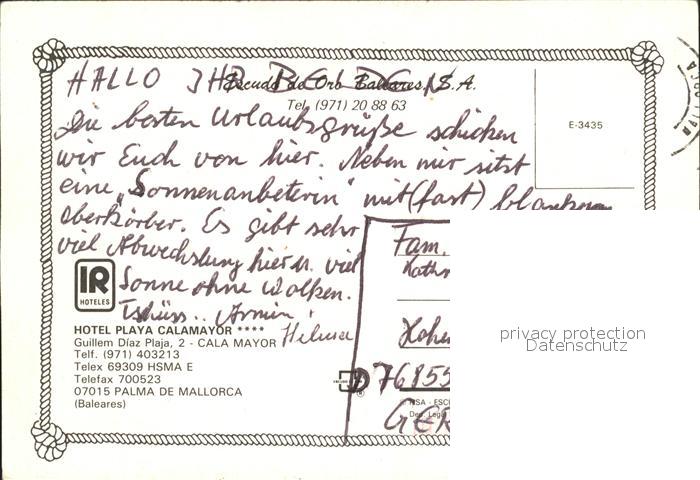 HALLO IHR
Escudo de Oro Baleares, S.A.
Tel. (971) 20 88 63
E-3435
Die besten Urlaubsgrüße schicken
wir Euch von hier. Neben mir sitzt
eine „Sonnenanbeterin" mit (fast) blankem
Oberkörber. Es gibt sehr
viel Abwechslung hier u. viel
Sonne ohne Wolken.
Tschüss.. Armin
Helma
IR
HOTELES
HOTEL PLAYA CALAMAYOR ****
Guillem Díaz Plaja, 2 - CALA MAYOR
Telf. (971) 403213
Telex 69309 HSMA E
Telefax 700523
07015 PALMA DE MALLORCA
(Baleares)
Fam.
Hohe
76855
GER
privacy protection
Datenschutz